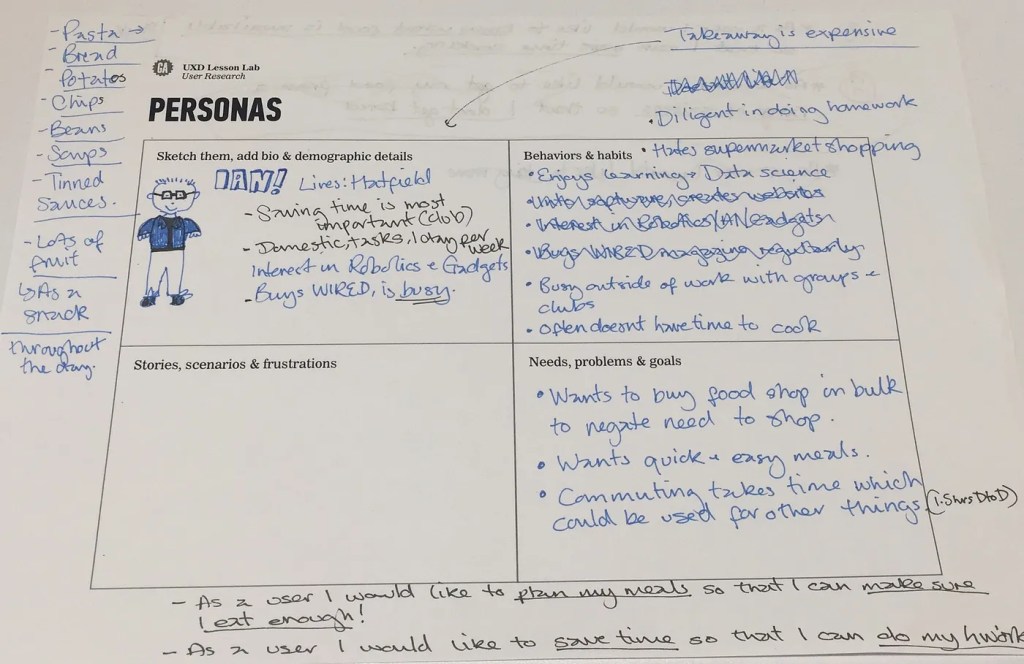 - Pasta →
- Bread
- Potatos
- Chips
- Beans
- Soups
- Tinned
sauces.
- Lots of
fruit
↳ As a
snack
throughout
the day.
GA
UXD Lesson Lab
User Research
PERSONAS
Takeaway is expensive
• Diligent in doing homework
Sketch them, add bio & demographic details
IAN!
Lives: Hatfield
- Saving time is most
important (club)
- Domestic, tasks, 1 day per
week
Interect in Robotics + Gadgets
- Buys WIRED, is busy.
Behaviors & habits
• Hates supermarket shopping
• Enjoys learning → Data science
• Interest in Robotics/ Gadgets
• Buys WIRED magazine regularly.
• Busy outside of work with groups +
clubs
• Often doesnt have time to cook
Stories, scenarios & frustrations
Needs, problems & goals
• Wants to buy food shop in bulk
to negate need to shop.
• Wants quick + easy meals.
• Commuting takes time which
could be used for other things.
(1.5hrs DtoD)
- As a user I would like to plan my meals so that I can make sure
I eat enough!
- As a user I would like to save time so that I can do my hwork